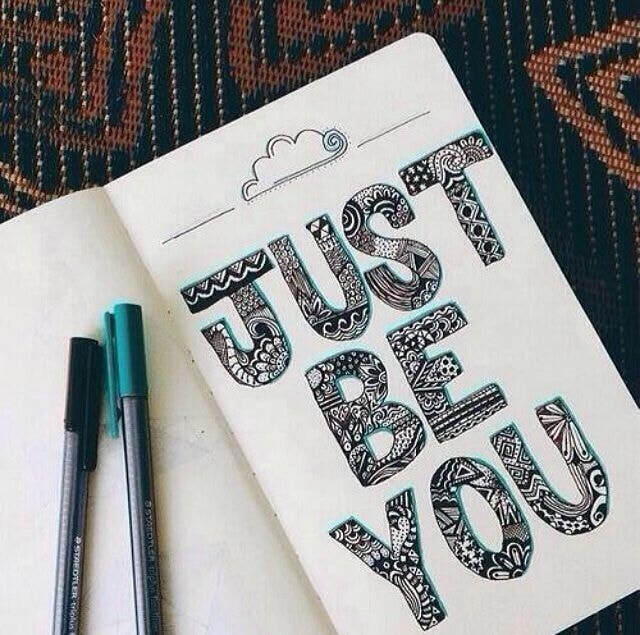 JUST
BE
YOU
STAEDTLER triplus
STAEDTLER